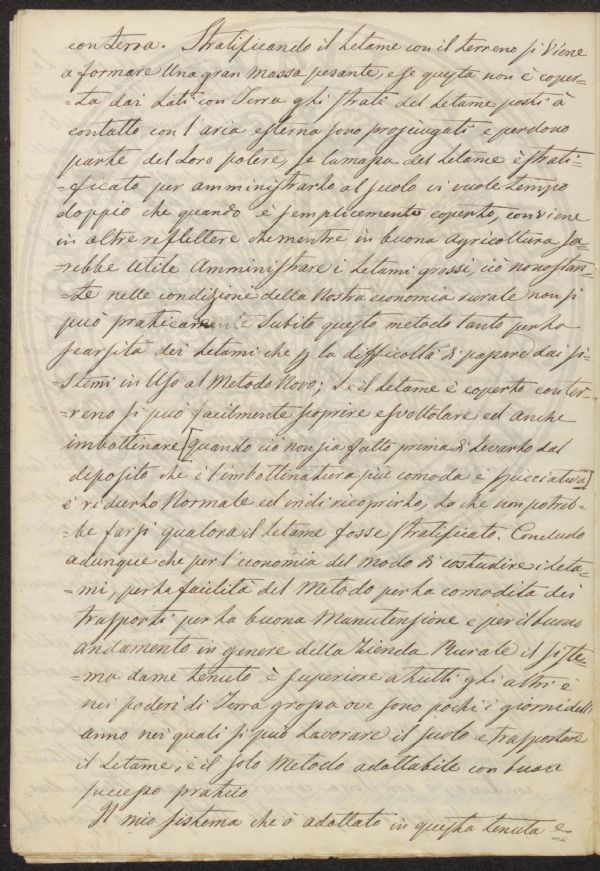 con terra. Stratificando il Letame con il terreno si viene
a formare una gran massa pesante, e se questa non è coper-
-ta dai Lati con Terra gli strati del Letame posti à
contatto con l'aria esterna sono prosciugati e perdono
parte del Loro potere, se la massa del Letame è strati-
-ficato per amministrarlo al suolo vi vuole tempo
doppio che quando è semplicemente coperto, conviene
in oltre reflettere che mentre in buona Agricoltura sa-
-rebbe utile Amministrare i Letami grossi, ciò nonostan-
-te nelle condizione della Nostra economia rurale non si
può praticamente Subito questo metodo tanto per la
scarsità dei Letami che p la difficoltà di passare dai si-
stemi in Uso al Metodo Novo; Se il Letame è coperto con ter-
-reno si può facilmente scoprire e svoltolare ed anche
imbottinare [quando ciò non sia fatto prima di Levarlo dal
deposito che è l'imbottinatura più comoda e spicciativa]
e ridurlo Normale ed indi ricoprirlo, Lo che non potreb-
-be farsi qualora il Letame fosse stratificato. Concludo
adunque che per l'economia del modo di costudire i Leta-
-mi, per la facilità del Metodo per la comodita dei
trasporti per la buona Manutensione e per il buono
andamento in genere della Azienda Rurale il siste-
-ma da me tenuto è superiore a tutti gli altri è
nei poderi di Terra grossa ove sono pochi i giorni dell
anno nei quali si può Lavorare il suolo e trasportare
il Letame, è il solo Metodo adottabile con buon
successo pratico
Il mio sistema che ò adottato in questa tenuta e